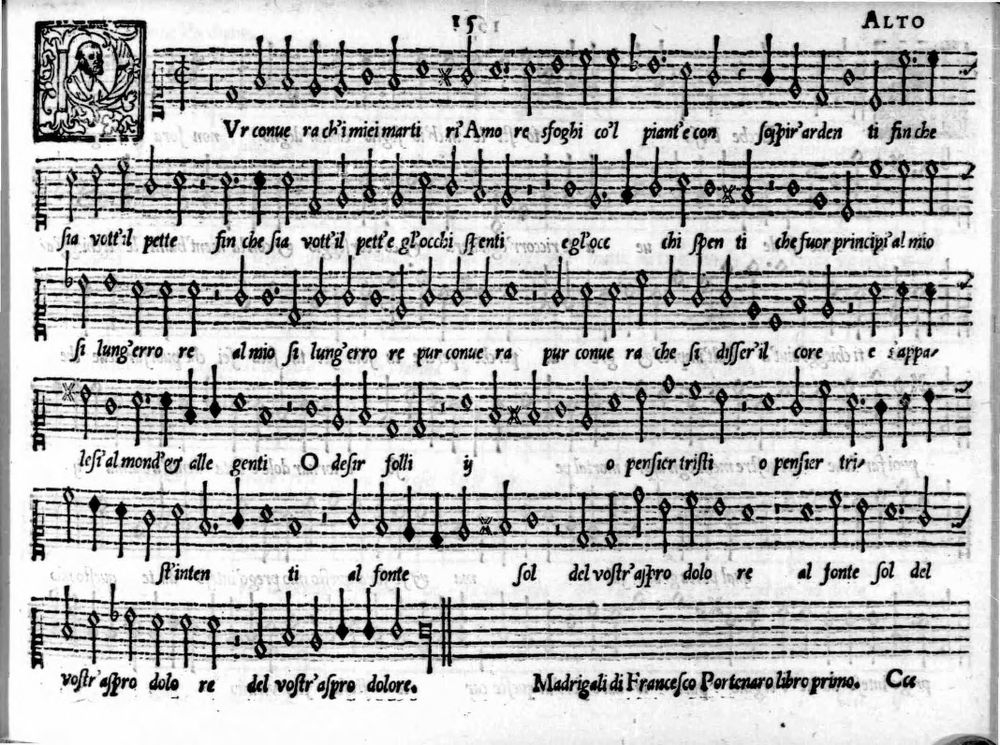 15 ALTO
PVr conue ra ch'i miei marti ri'Amo re sfoghi co'l piant'e con sospir'arden ti fin che
sia vott'il pette fin che sia vott'il pett'e gl'occhi spenti e gl'occ chi spen ti che fuor principi'al mio
si lung'erro re al mio si lung'erro re pur conue ra pur conue ra che si disser'il core e s'appa-
lesi'al mond'& alle genti O desir folli ij o pensier tristi o pensier tri-
st'inten ti al fonte sol del vostr'aspro dolo re al fonte sol del
vostr'aspro dolo re del vostr'aspro dolore.
Madrigali di Francesco Portenaro libro primo. Ccc